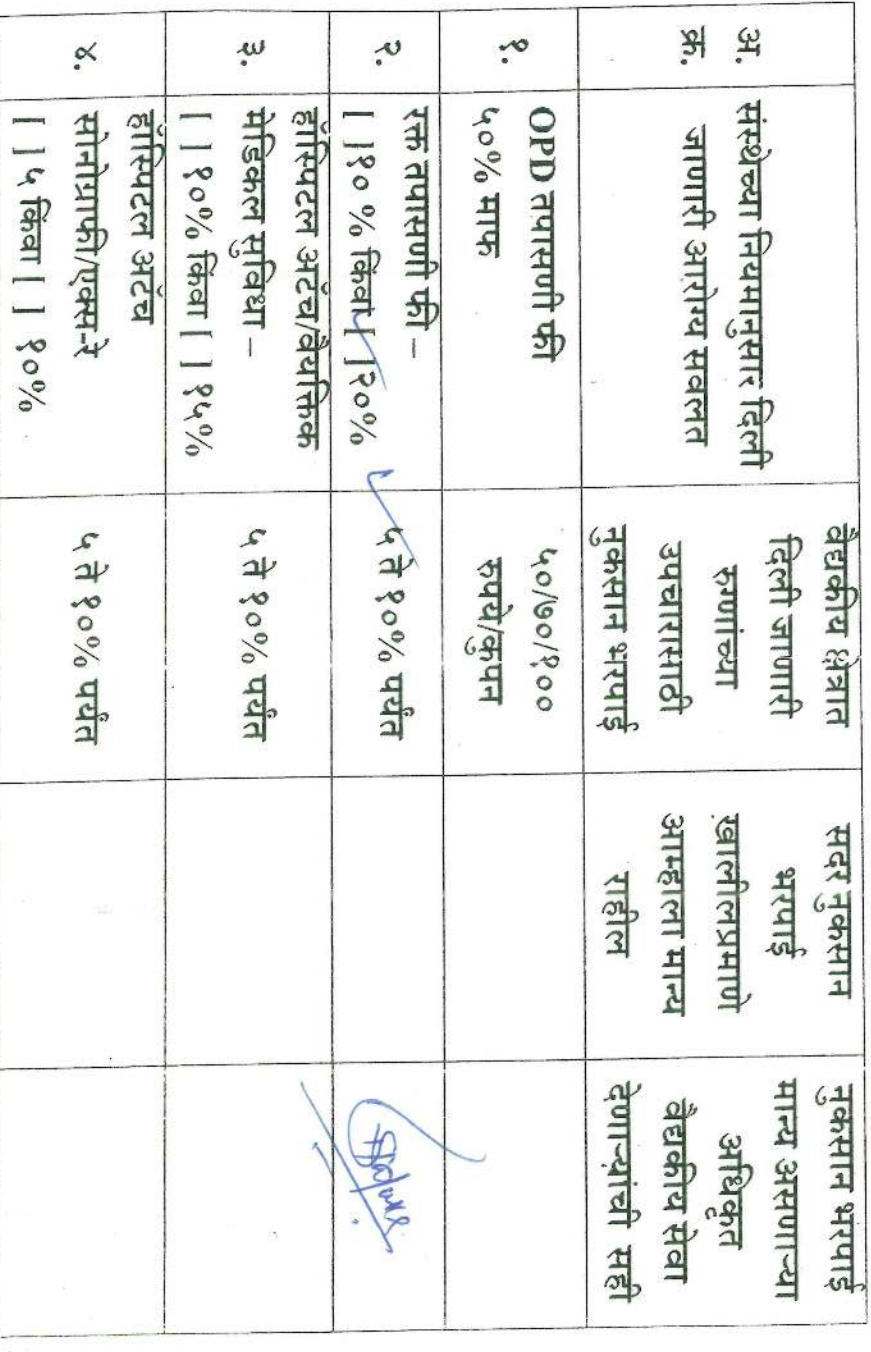 अ.
क्र.
संस्थेच्या नियमानुसार दिली
जाणारी आरोग्य सवलत
वैद्यकीय क्षेत्रात
दिली जाणारी
रुग्णांच्या
उपचारासाठी
नुकसान भरपाई
सदर नुकसान
भरपाई
खालीलप्रमाणे
आम्हाला मान्य
राहील
नुकसान भरपाई
मान्य असणाऱ्या
अधिकृत
वैद्यकीय सेवा
देणाऱ्यांची सही
१.
OPD तपासणी फी
५०% माफ
५०/७०/१००
रुपये/कुपन
२.
रक्त तपासणी फी –
[ ]१० % किंवा [ ]२०%
५ ते १०% पर्यंत
३.
हॉस्पिटल अटॅच/वैयक्तिक
मेडिकल सुविधा –
[ ] १०% किंवा [ ] १५%
५ ते १०% पर्यंत
४.
हॉस्पिटल अटॅच
सोनोग्राफी/एक्स-रे
[ ] ५ किंवा [ ] १०%
५ ते १०% पर्यंत